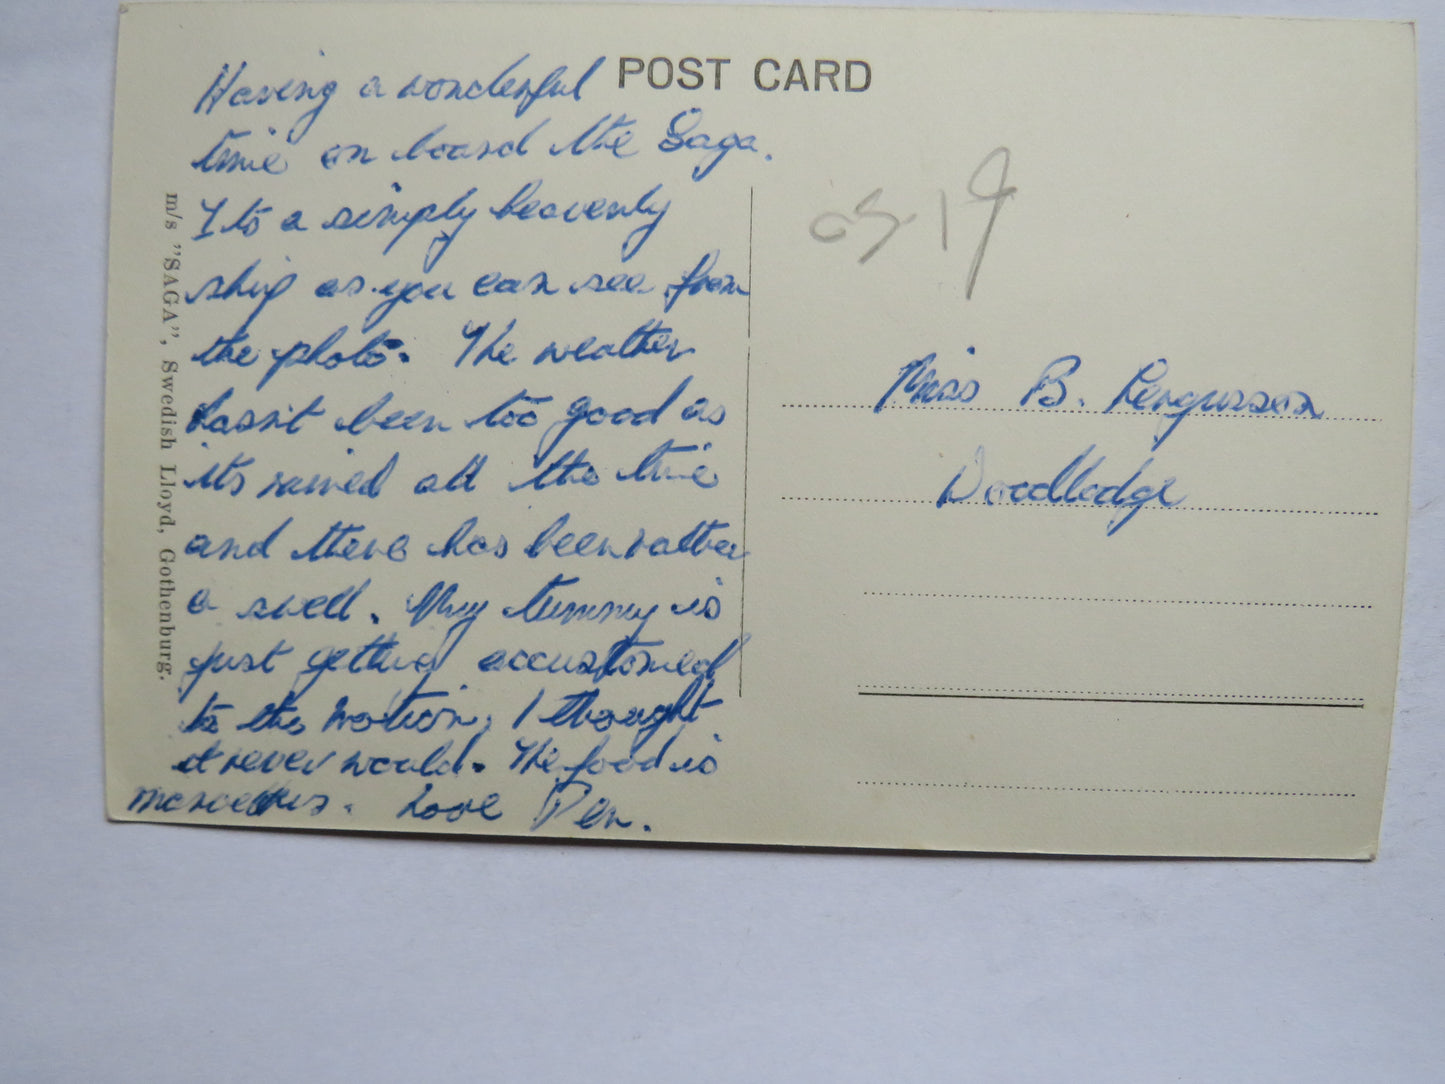 POST CARD
Having a wonderful
time on board the Saga.
Its a simply heavenly
ship as you can see from
the photo. The weather
hasn't been too good as
it's rained all the time
and there has been rather
a swell. My tummy is
just getting accustomed
to the motion, I thought
it never would. The food is
Love Pen.
m/s "SAGA", Swedish Lloyd, Gothenburg.
Miss B. Fergusson
Woodledge